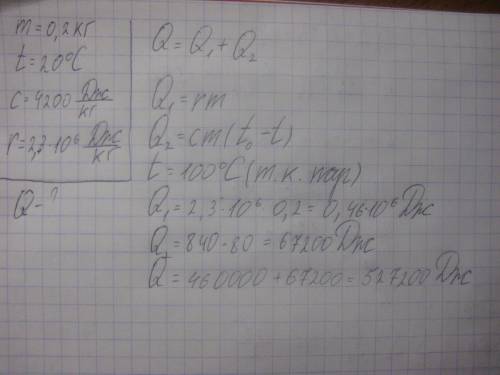 m = 0,2 кг
t = 20°C
c = 4200 Дж/кг
r = 2,3·10⁶ Дж/кг
Q - ?
Q = Q₁ + Q₂
Q₁ = rm
Q₂ = cm(t₀ - t)
t = 100°C (т.к. пар)
Q₁ = 2,3·10⁶·0,2 = 0,46·10⁶ Дж
Q₂ = 840·80 = 67200 Дж
Q = 460000 + 67200 = 527200 Дж